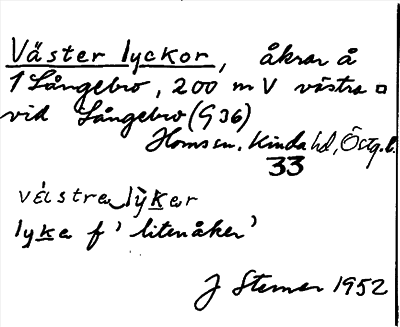 Väster lyckor, åkrar å
1 Långebro, 200 m V västra □
vid Långebro (G 36)
Horns sn. Kinda hd, Östg. l.
33
västra lỳker
lyka f 'liten åker'
J Sterner 1952